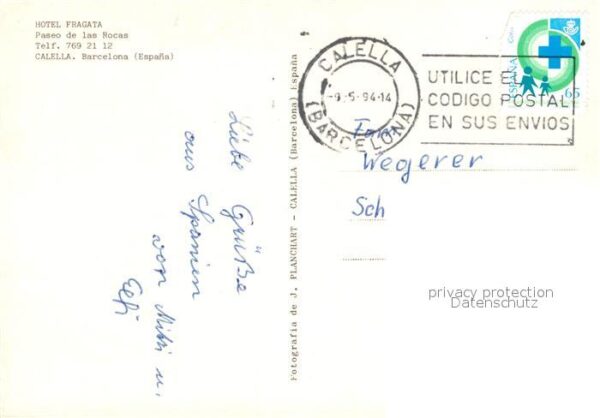 HOTEL FRAGATA
Paseo de las Rocas
Telf. 769 21 12
CALELLA. Barcelona (España)
Liebe Grüße
aus Spanien
von Mitzi u.
Elfi
Fotografia de J. PLANCHART - CALELLA (Barcelona) España
CALELLA
-9.-5-94-14
(BARCELONA)
UTILICE EL
CODIGO POSTAL
EN SUS ENVIOS
ESPAÑA
65
Fam
Wegerer
Sch
privacy protection
Datenschutz